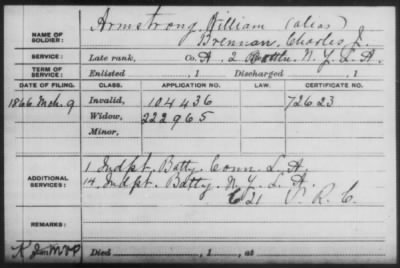 NAME OF SOLDIER: Armstrong, William (alias)
Brennan, Charles J.
SERVICE: Late rank, Co. A. 2 Battn. N.Y.L.A.
TERM OF SERVICE: Enlisted , 1 Discharged , 1
DATE OF FILING. CLASS. APPLICATION NO. LAW. CERTIFICATE NO.
1866 Mch. 9 Invalid, 104436 72623
Widow, 222965
Minor,
ADDITIONAL SERVICES: 1 Indpt. Batty. Conn. L.A.
14 Indpt. Batty. N.Y. L.A.
C 21 V.R.C.
REMARKS:
Died , 1 , at